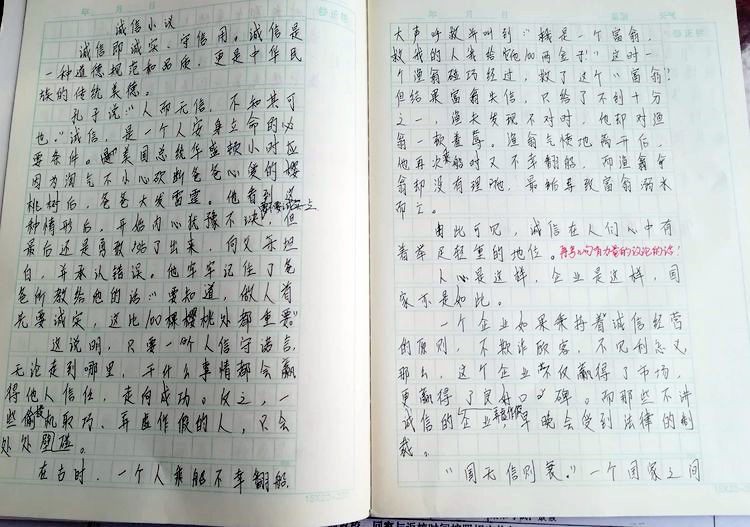 诚信小议
诚信即诚实、守信用。诚信是
一种道德规范和品质，更是中华民
族的传统美德。
孔子说"人而无信，不知其可
也。"诚信，是一个人安身立命的必
要条件。美国总统华盛顿小时应
因为淘气不小心砍断爸爸心爱的樱
桃树后，爸爸大发雷霆。他看到这
种情形后，开始内心犹豫不决，但
最后还是勇敢站了出来，向父亲坦
白，并承认错误。他牢牢记住了爸
爸所教给他的话："要知道，做人首
先要诚实，这比100棵樱桃树都重要。"
这说明，只要一个人信守诺言，
无论走到哪里，干什么事情都会赢
得他人信任，走向成功。反之，一
些偷投机取巧、弄虚作假的人，只会
处处壁碰。
在古时，一个人乘船不幸翻船，
大声呼救并叫到"我是一个富翁，
救我的人我给他100两金子！"这时一
个渔翁碰巧经过，救了这个"富翁"
但结果富翁失信，只给了不到十分
之一，渔夫发现不对时，他却对渔
翁一顿羞辱。渔翁气愤地离开后，
他再次乘船时又不幸翻船，而渔翁
翁却没有理他，最后导致富翁溺水
而亡。
由此可见，诚信在人们心中有
着举足轻重的地位。再多几句有力量的议论的话！
人心是这样，企业是这样，国
家亦是如此。
一个企业如果秉持着诚信经营
的原则，不欺诈顾客，不见利忘义
那么，这个企业不仅赢得了市场，
更赢得了良好口碑。而那些不讲
诚信的企业，早晚会受到法律的制
裁。
"国无信则衰。"一个国家之间